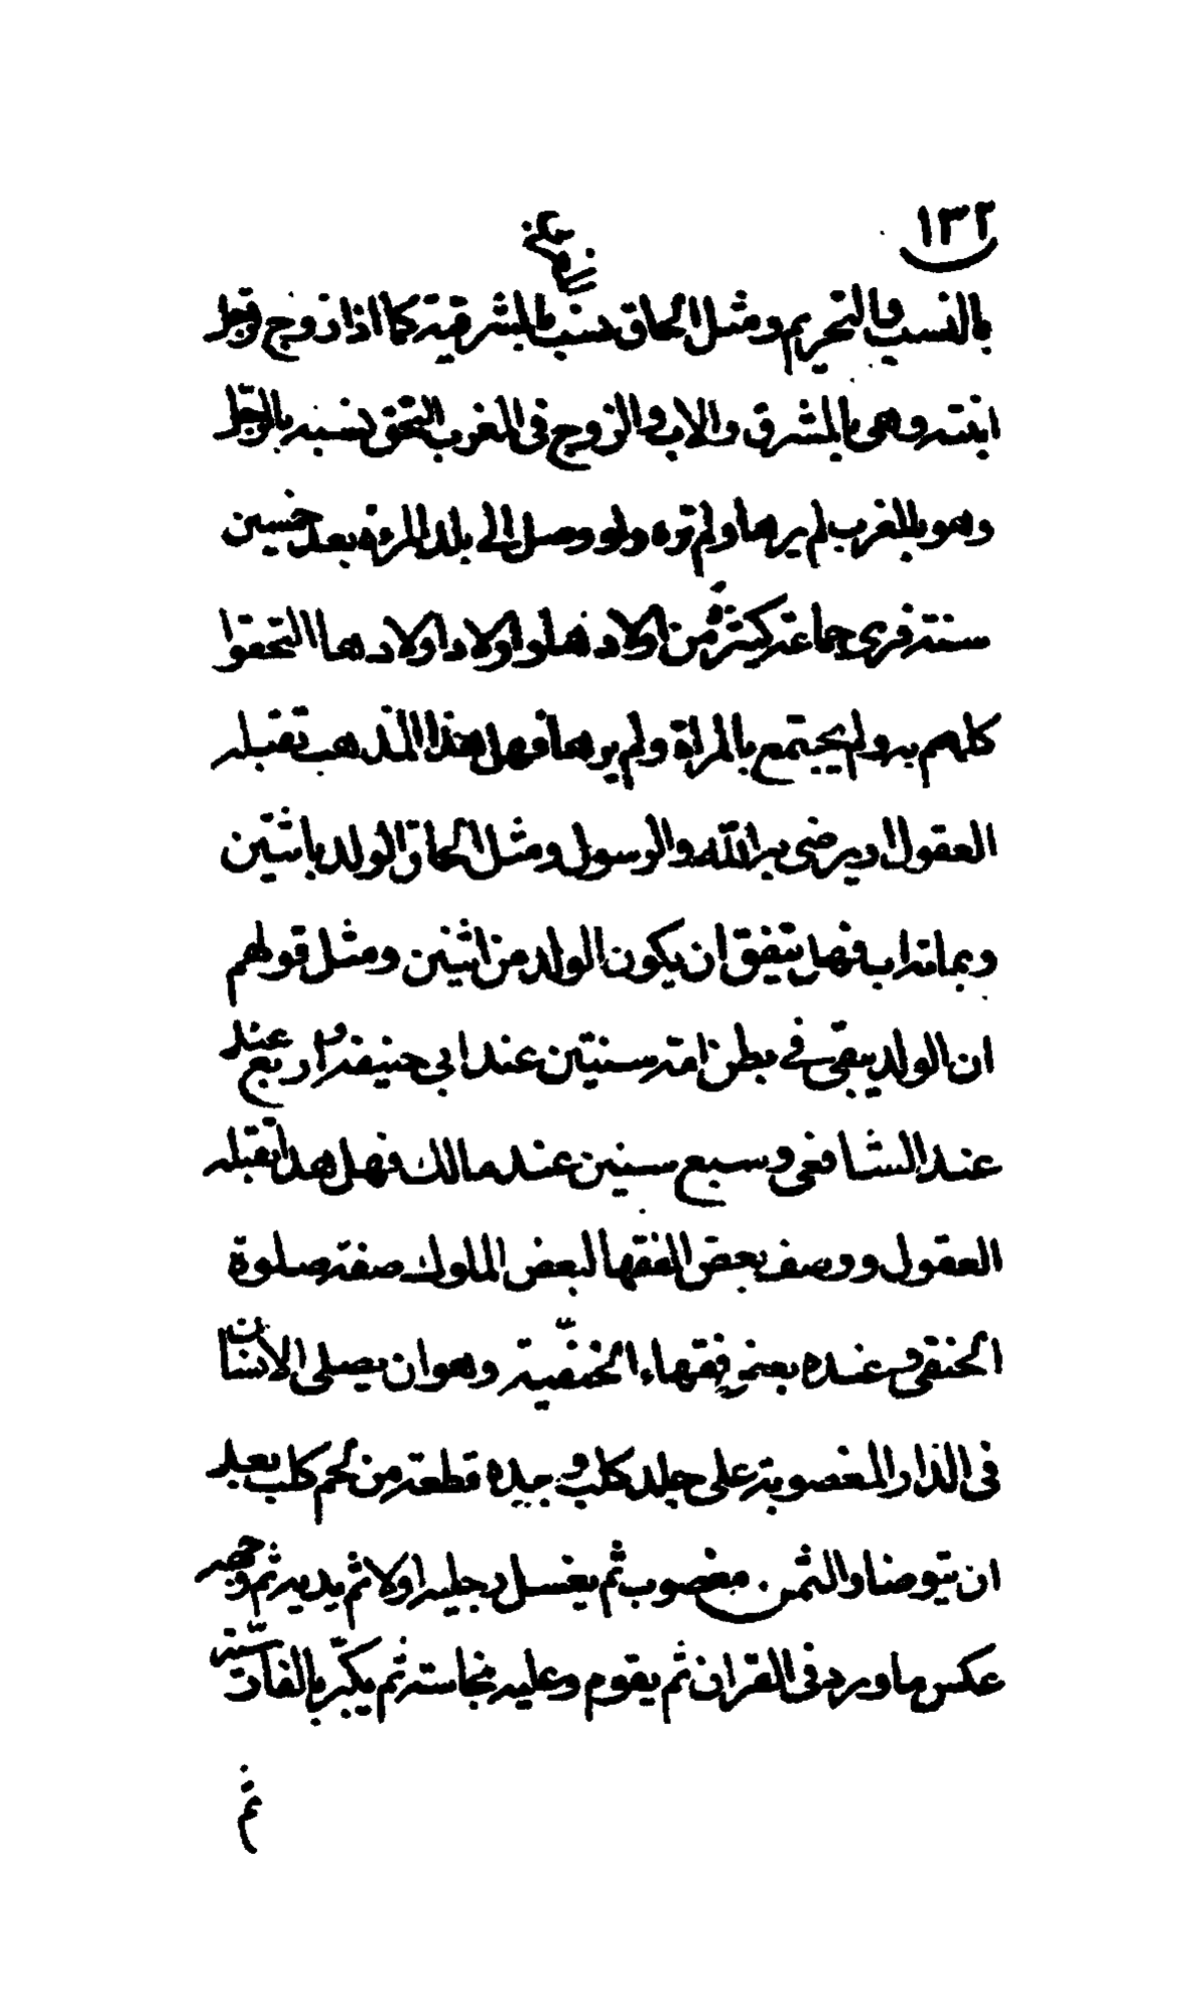 ١٣٢
بالنسب وبالتحريم ومثل الحاق نسب بالمشرقية كما اذا زوج رجل
ابنته وهى بالمشرق والاب والزوج فى المغرب التحق نسبه بالرجل
وهو بالمغرب لم يرها ولم تره ولو وصل الى بلد المرءة بعد خمسين
سنة فرى جماعة كثيرة من اولاد هلوا اولاد اولادها التحقوا
كلهم به ولم يجتمع بالمراة ولم يرها فهل هذا المذهب تقبله
العقول اديرضى به الله والرسول ومثل الحاق الولد باثنين
وبماتة اب فهل يتفق ان يكون الولد من اثنين ومثل قولهم
ان الولد يبقى فى بطن امه سنتين عند ابى حنيفة واربع عند
عند الشافعى وسبع سنين عند مالك فهل هذا تقبله
العقول ووصف بعض الفقها لبعض الملوك صفة صلوة
الحنفى وعنده بعض فقهاء الحنفية وهو ان يصلى الانسان
فى الدار المغصوبة على جلد كلب وبيده قطعة من لحم كلب بعد
ان يتوضا والثمن مغصوب ثم يغسل رجليه اولا ثم يديه ثم وجهه
عكس ما ورد فى القران ثم يقوم وعليه نجاسة ثم يكبر بالفارسية
ثم